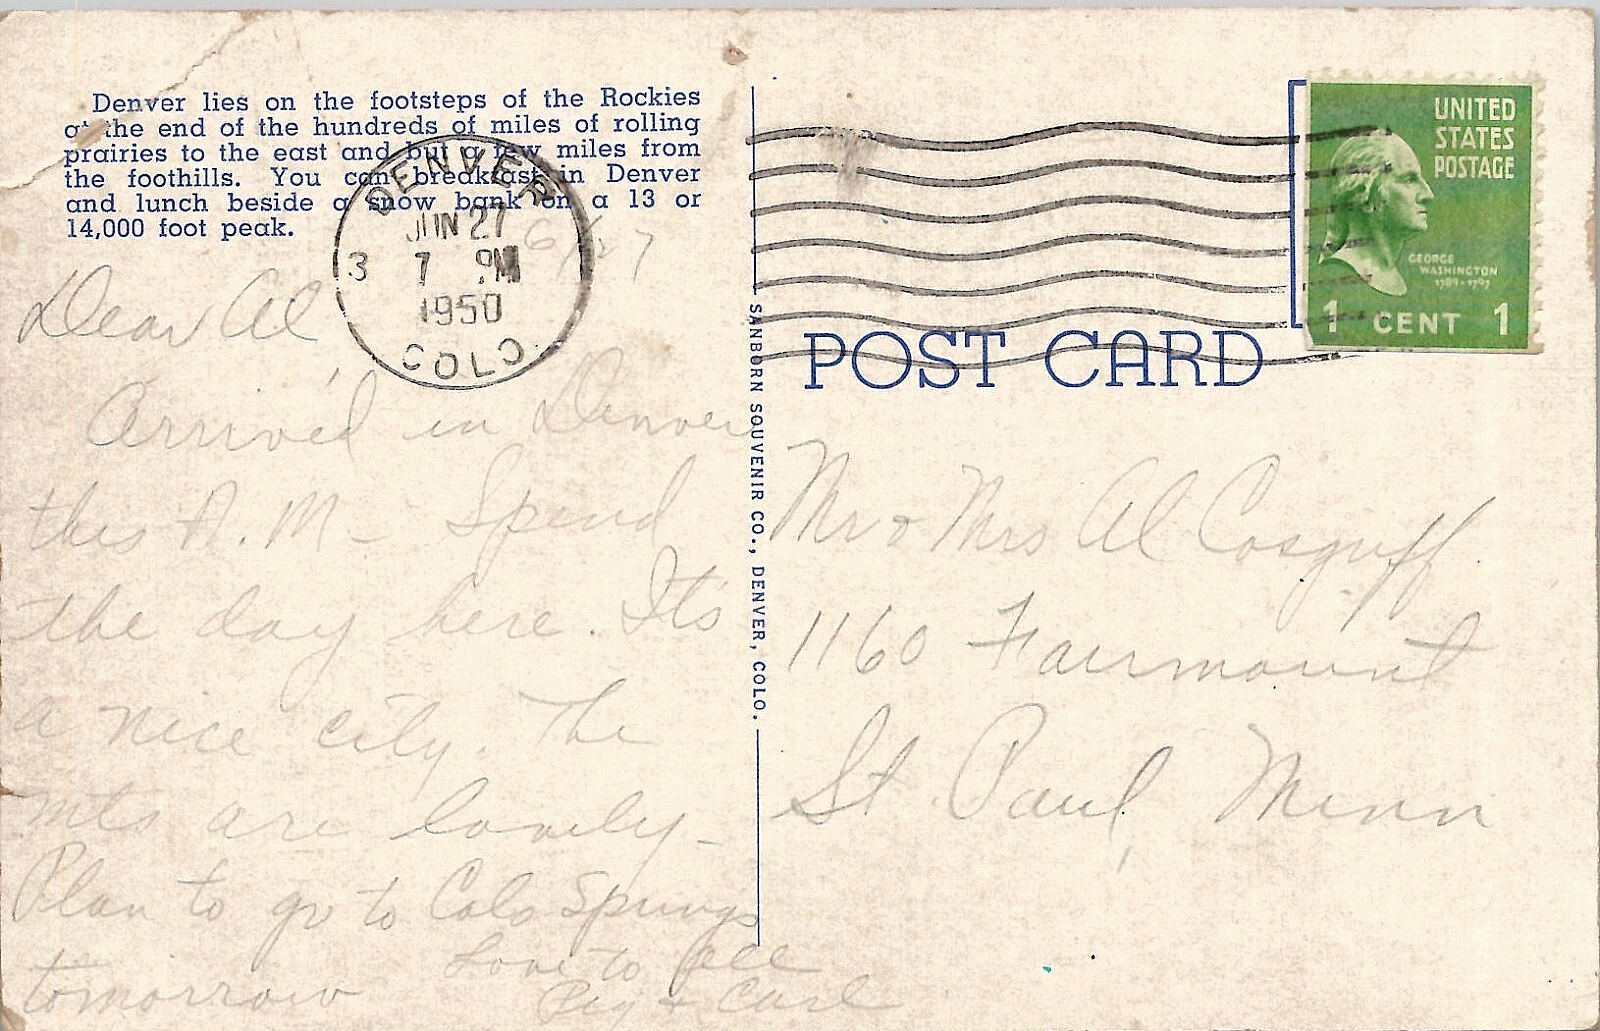 Denver lies on the footsteps of the Rockies
at the end of the hundreds of miles of rolling
prairies to the east and but a few miles from
the foothills. You can breakfast in Denver
and lunch beside a snow bank on a 13 or
14,000 foot peak.
DENVER
JUN 27
3 7 PM
1950
COLO.
6/27
Dear Al,
Arrived in Denver
this A.M – Spend
the day here. It's
a nice city. The
mts are lovely –
Plan to go to Colo Springs
tomorrow
Love to all
Peg + Carl
SANBORN SOUVENIR CO., DENVER, COLO.
UNITED
STATES
POSTAGE
GEORGE
WASHINGTON
1789-1797
1 CENT 1
POST CARD
Mr & Mrs Al Cosgriff
1160 Fairmount
St. Paul, Minn